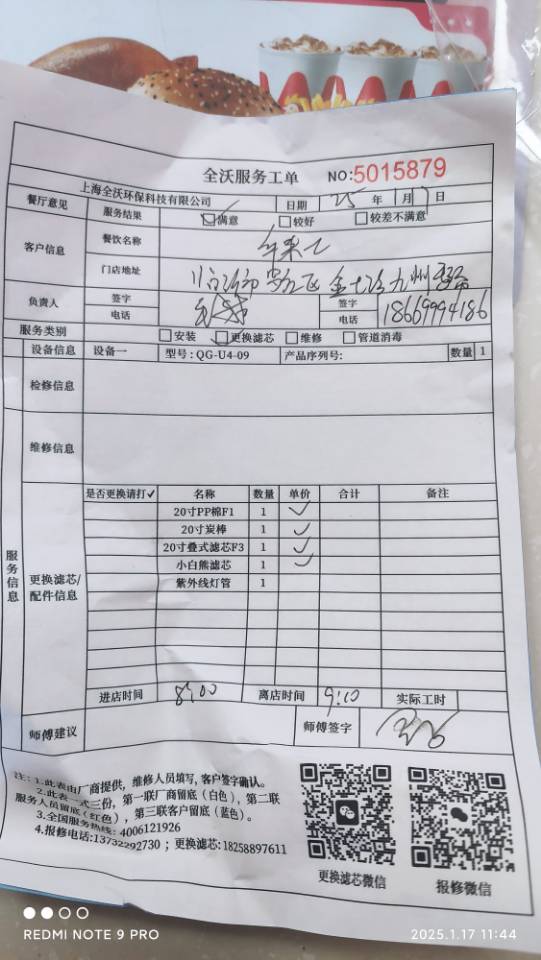 全沃服务工单 NO:5015879
上海全沃环保科技有限公司 日期 25年1月17日
餐厅意见 服务结果 满意 较好 较差不满意
客户信息 餐饮名称
门店地址
负责人 签字 签字
电话 电话 18669994186
服务类别 安装 更换滤芯 维修 管道消毒
设备信息 设备一 型号:QG-U4-09 产品序列号: 数量 1
检修信息
维修信息
服务信息
更换滤芯/配件信息
是否更换请打✓ 名称 数量 单价 合计 备注
20寸PP棉F1 1 ✓
20寸炭棒 1 ✓
20寸叠式滤芯F3 1 ✓
小白熊滤芯 1 ✓
紫外线灯管 1
进店时间 8:00 离店时间 9:10 实际工时
师傅建议 师傅签字
注:1.此表由厂商提供,维修人员填写,客户签字确认。
2.此表一式三份,第一联厂商留底(白色),第二联
服务人员留底(红色),第三联客户留底(蓝色)。
3.全国服务热线:4006121926
4.报修电话:13732292730;更换滤芯:18258897611
更换滤芯微信 报修微信
REDMI NOTE 9 PRO 2025.1.17 11:44